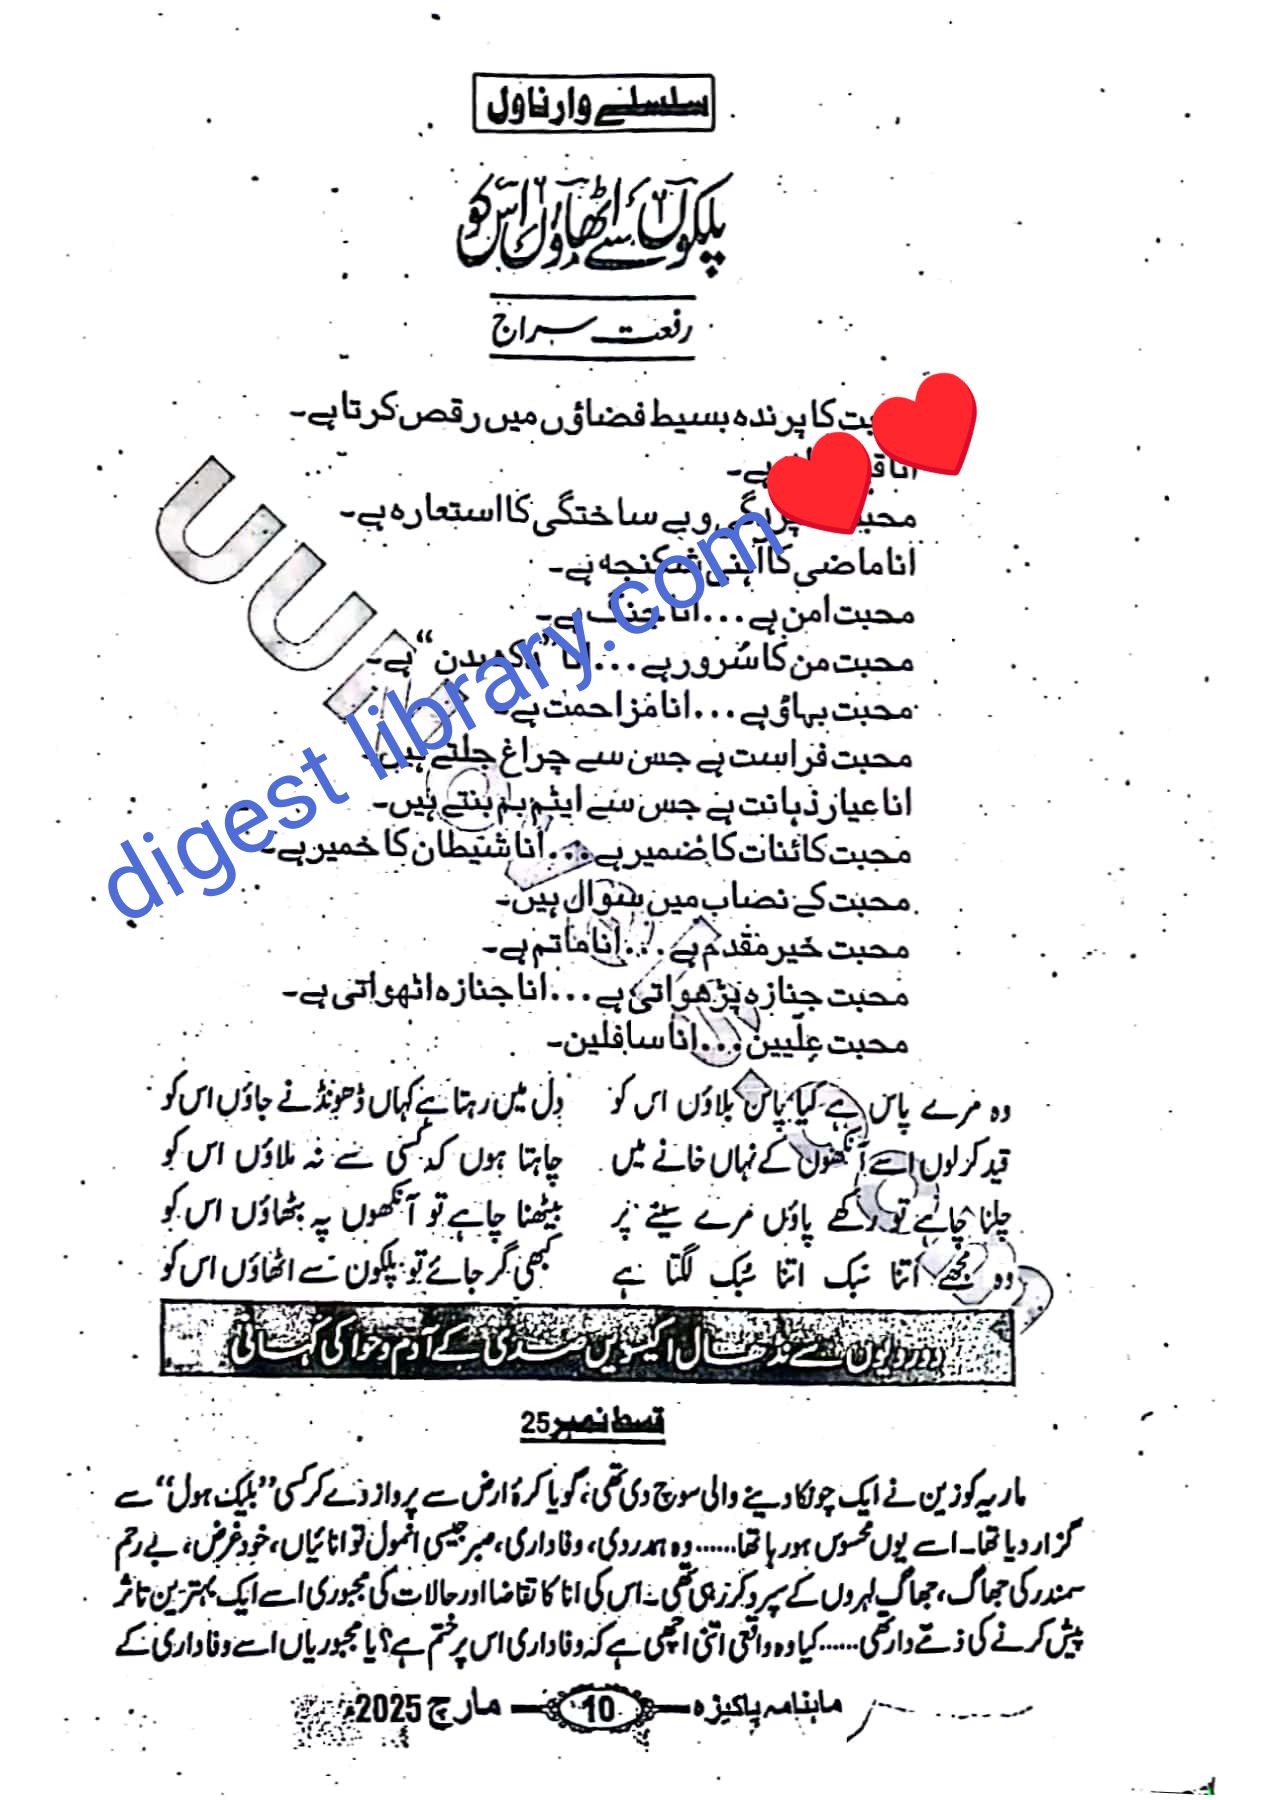 سلسلے وار ناول
پلکوں سے اٹھاؤں اس کو
رفعت سراج
کا پرندہ بسیط فضاؤں میں رقص کرتا ہے۔
انا ہے۔
و بے ساختگی کا استعارہ ہے۔
انا ماضی کا آہنی شکنجہ ہے۔
محبت امن ہے...انا جنگ ہے۔
محبت من کا سُرور ہے...انا ”دکھ بدن“ ہے۔
محبت بہاؤ ہے...انا مزاحمت ہے۔
محبت فراست ہے جس سے چراغ جلتے ہیں۔
انا عیار ذہانت ہے جس سے ایٹم بم بنتے ہیں۔
محبت کائنات کا ضمیر ہے...انا شیطان کا خمیر ہے۔
محبت کے نصاب میں سوال ہیں۔
محبت خیر مقدم ہے...انا ماتم ہے۔
محبت جنازہ پڑھواتی ہے...انا جنازہ اٹھواتی ہے۔
محبت عِلّیین...انا سافلین۔
وہ مرے پاس ہے کیا پاس بلاؤں اس کو دل میں رہتا ہے کہاں ڈھونڈنے جاؤں اس کو
قید کر لوں اسے آنکھوں کے نہاں خانے میں چاہتا ہوں کہ کسی سے نہ ملاؤں اس کو
چلنا چاہے تو رکھے پاؤں مرے سینے پر بیٹھنا چاہے تو آنکھوں پہ بٹھاؤں اس کو
وہ مجھے اتنا سُبک اتنا سُبک لگتا ہے کبھی گر جائے تو پلکوں سے اٹھاؤں اس کو
دو رویوں سے نڈھال اکیسویں صدی کے آدم و حوا کی کہانی
قسط نمبر 25
ماریہ کو زین نے ایک چونکا دینے والی سوچ دی تھی، گویا کرۂ ارض سے پرواز دے کر کسی ”بلیک ہول“ سے
گزار دیا تھا۔ اسے یوں محسوس ہو رہا تھا...... وہ ہمدردی، وفاداری، صبر جیسی انمول توانائیاں، خود غرض، بے رحم
سمندر کی جھاگ، جھاگ لہروں کے سپرد کر رہی تھی۔ اس کی انا کا تقاضا اور حالات کی مجبوری اسے ایک بہترین تاثر
پیش کرنے کی ذمے دار تھی...... کیا وہ واقعی اتنی اچھی ہے کہ وفاداری اس پر ختم ہے؟ یا مجبوریاں اسے وفاداری کے
ماہنامہ پاکیزہ 10 مارچ 2025ء
digest library.com